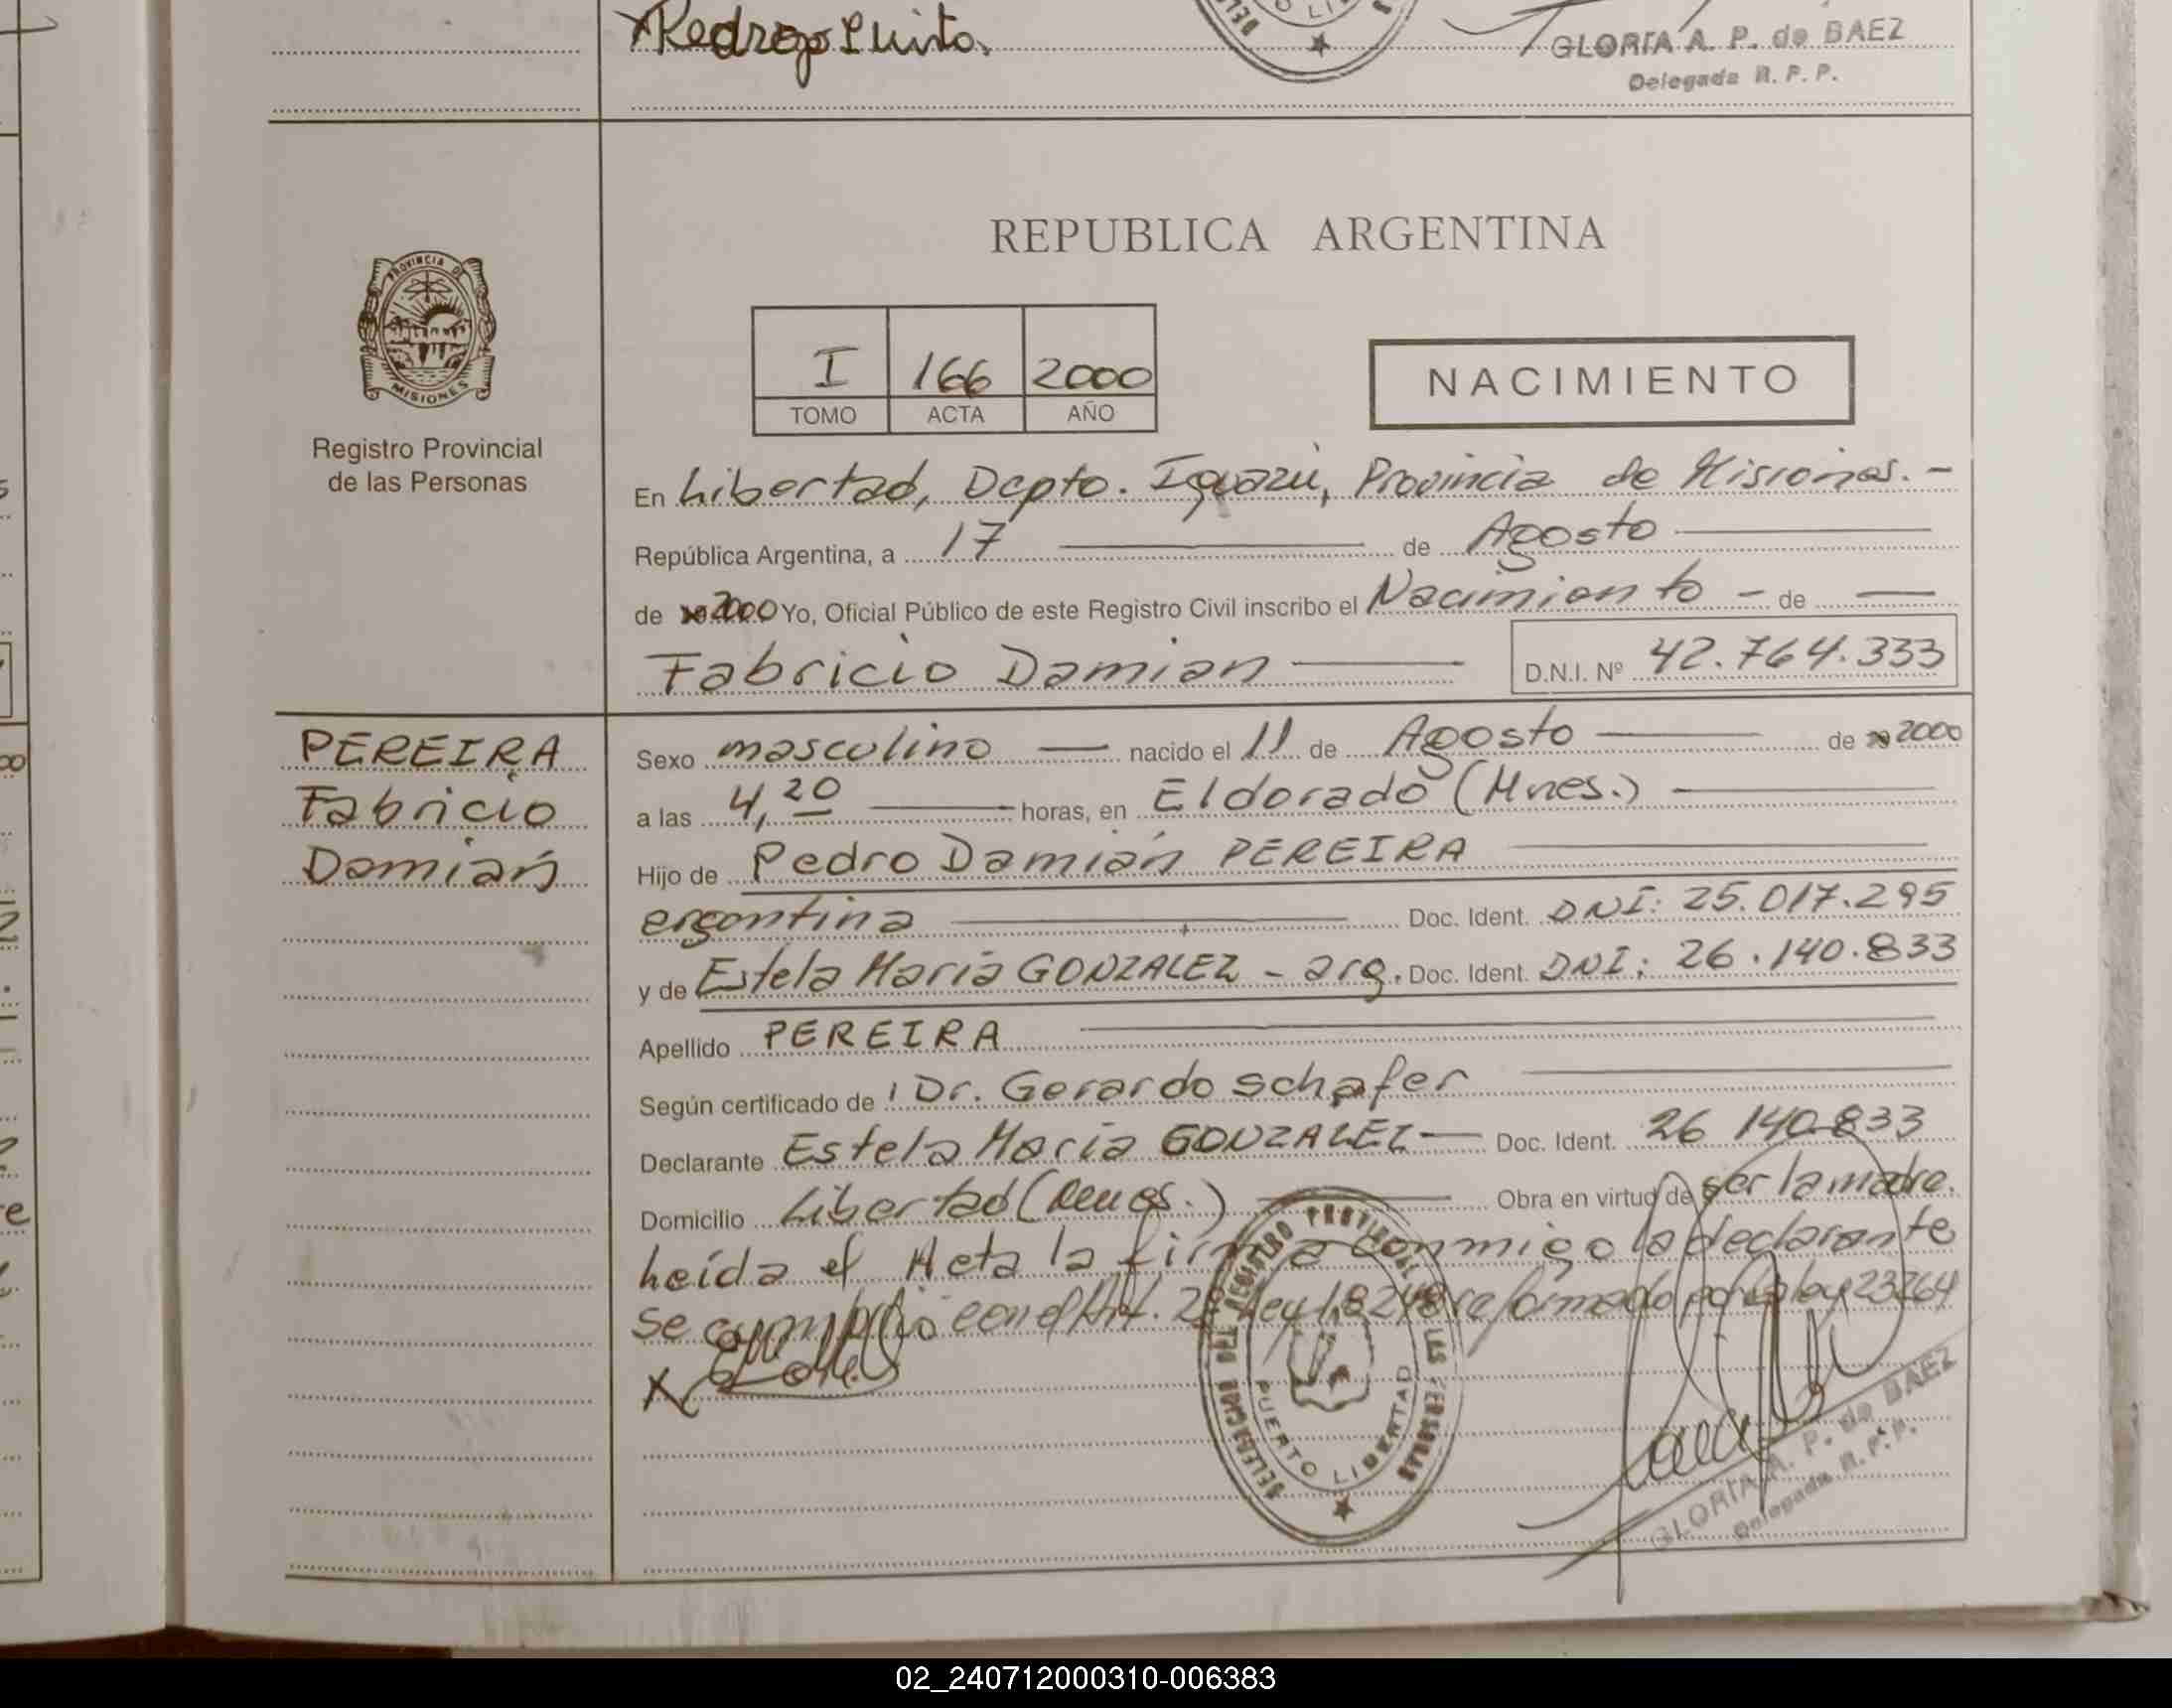 Pedrozo
GLORIA A. P. de BAEZ
Delegada R. P. P.
PROVINCIA DE
MISIONES
Registro Provincial
de las Personas
REPUBLICA ARGENTINA
I 166 2000
TOMO ACTA AÑO
NACIMIENTO
En Libertad, Dcpto. Iguazú, Provincia de Misiones.-
República Argentina, a 17 de Agosto
de 2000 Yo, Oficial Público de este Registro Civil inscribo el Nacimiento - de
Fabricio Damian D.N.I. Nº 42.764.333
PEREIRA
Fabricio
Damián
Sexo masculino nacido el 11 de Agosto de 2000
a las 4,20 horas, en Eldorado (Mnes.)
Hijo de Pedro Damián PEREIRA
argentina Doc. Ident. DNI: 25.017.295
y de Estela Maria GONZALEZ - arg. Doc. Ident. DNI: 26.140.833
Apellido PEREIRA
Según certificado de Dr. Gerardo Schafer
Declarante Estela Maria GONZALEZ Doc. Ident. 26 140.833
Domicilio Libertad Obra en virtud de ser la madre.
Leída el Acta la firma conmigo la declarante
se cumplio con el Art. Ley 18248 reformado por la ley 23264
DELEGACION DEL REGISTRO PROVINCIAL LAS PERSONAS
PUERTO LIBERTAD
GLORIA A. P. de BAEZ
Delegada R. P. P.
02_240712000310-006383